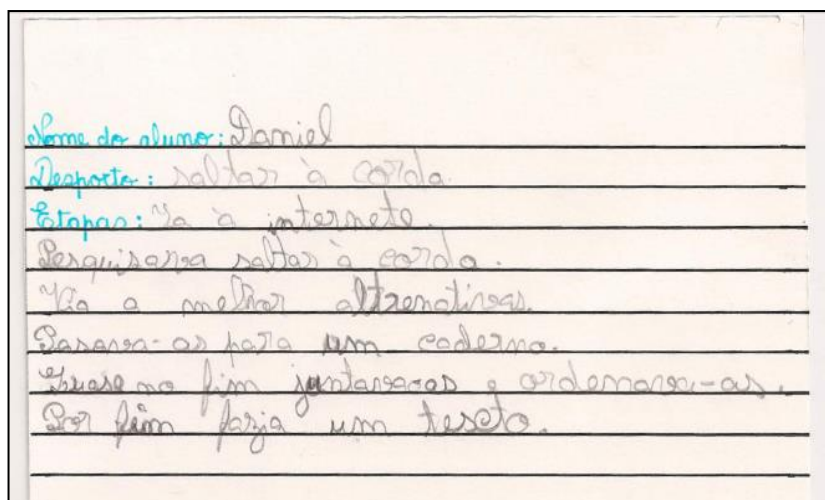 Nome do aluno: Daniel
Desporto: saltar à corda.
Etapas: Ia à internete.
Pesquisava saltar à corda.
Via a melhor altrenativas.
Pasava-as para um caderno.
Quase no fim juntavaoas e ordenava-as.
Por fim fazia um tescto.